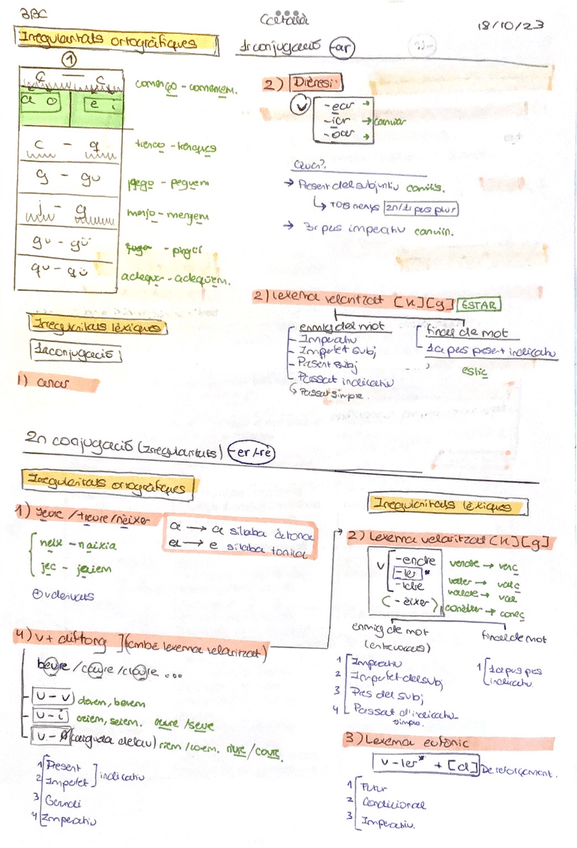 ABC
Català
18/10/23
Irregularitats ortogràfiques
1r conjugació -ar
1
ç - c
a o
e i
començo - comencem.
c - q
g - gu
pego - peguem
j - g
menjo - mengem
gu - gü
qu - qü
adequo - adeqüem.
2) Dièresi
V
-ear →
-iar → canviar
-oar →
Quan?
→ Present del subjuntiu canviïs.
↳ Tots menys 2n/1r pes plur
→ 3r pes imperatiu canviïn.
2) Lexema velaritzat [k] [g] ESTAR
enmig del mot
- Imperatiu
- Imperfet subj
- Present subj
- Passat indicatiu
↳ Passat simple.
final de mot
- 1a pes present indicatiu
estic
Irregularitats lèxiques
1a conjugació
1) anar
2n conjugació (Irregularitats) -er/-re
Irregularitats ortogràfiques
1) Jeure / treure / néixer
neix - naixia
jec - jaiem
derivats
a → a síl·laba àtona
a → e síl·laba tònica
4) V + diftong (amb lexema velaritzat)
beure / caure / cloure ...
u - v devem, bevem
u - i creiem, seiem. creure / seure
u - ∅ riem / coem. riure / coure.
1 Present
2 Imperfet
indicatiu
3 Gerundi
4 Imperatiu
Irregularitats lèxiques
2) Lexema velaritzat [k] [g]
V
-endre
-ler *
-ldre
(-èixer)
vendre → venc
valer → valc
conèixer → conec
enmig de mot
1 Imperatiu
2 Imperfet del subj
3 Pres del subj
4 Passat d'indicatiu
simple.
final de mot
1 1a pes pes
indicatiu
3) Lexema eufònic
v-ler* + [d] De reforçament.
1 Futur
2 Condicional
3 Imperatiu.